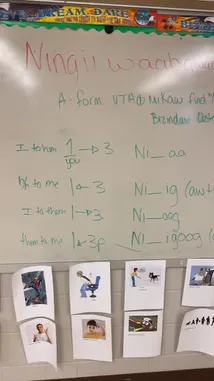 DREAM, DARE
Ningii waab
A- form VTA Mikaw find
I to him 1 → 3 Ni__aa
you
to me 1 ← 3 Ni__ig (aw
I to them 1 → 3 Ni__oog
them to me 1 ← 3p Ni__igoog (